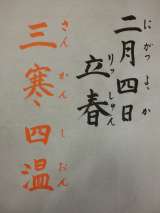 二月四日
にがつよっか
立春
りっしゅん
三寒四温
さんかんしおん